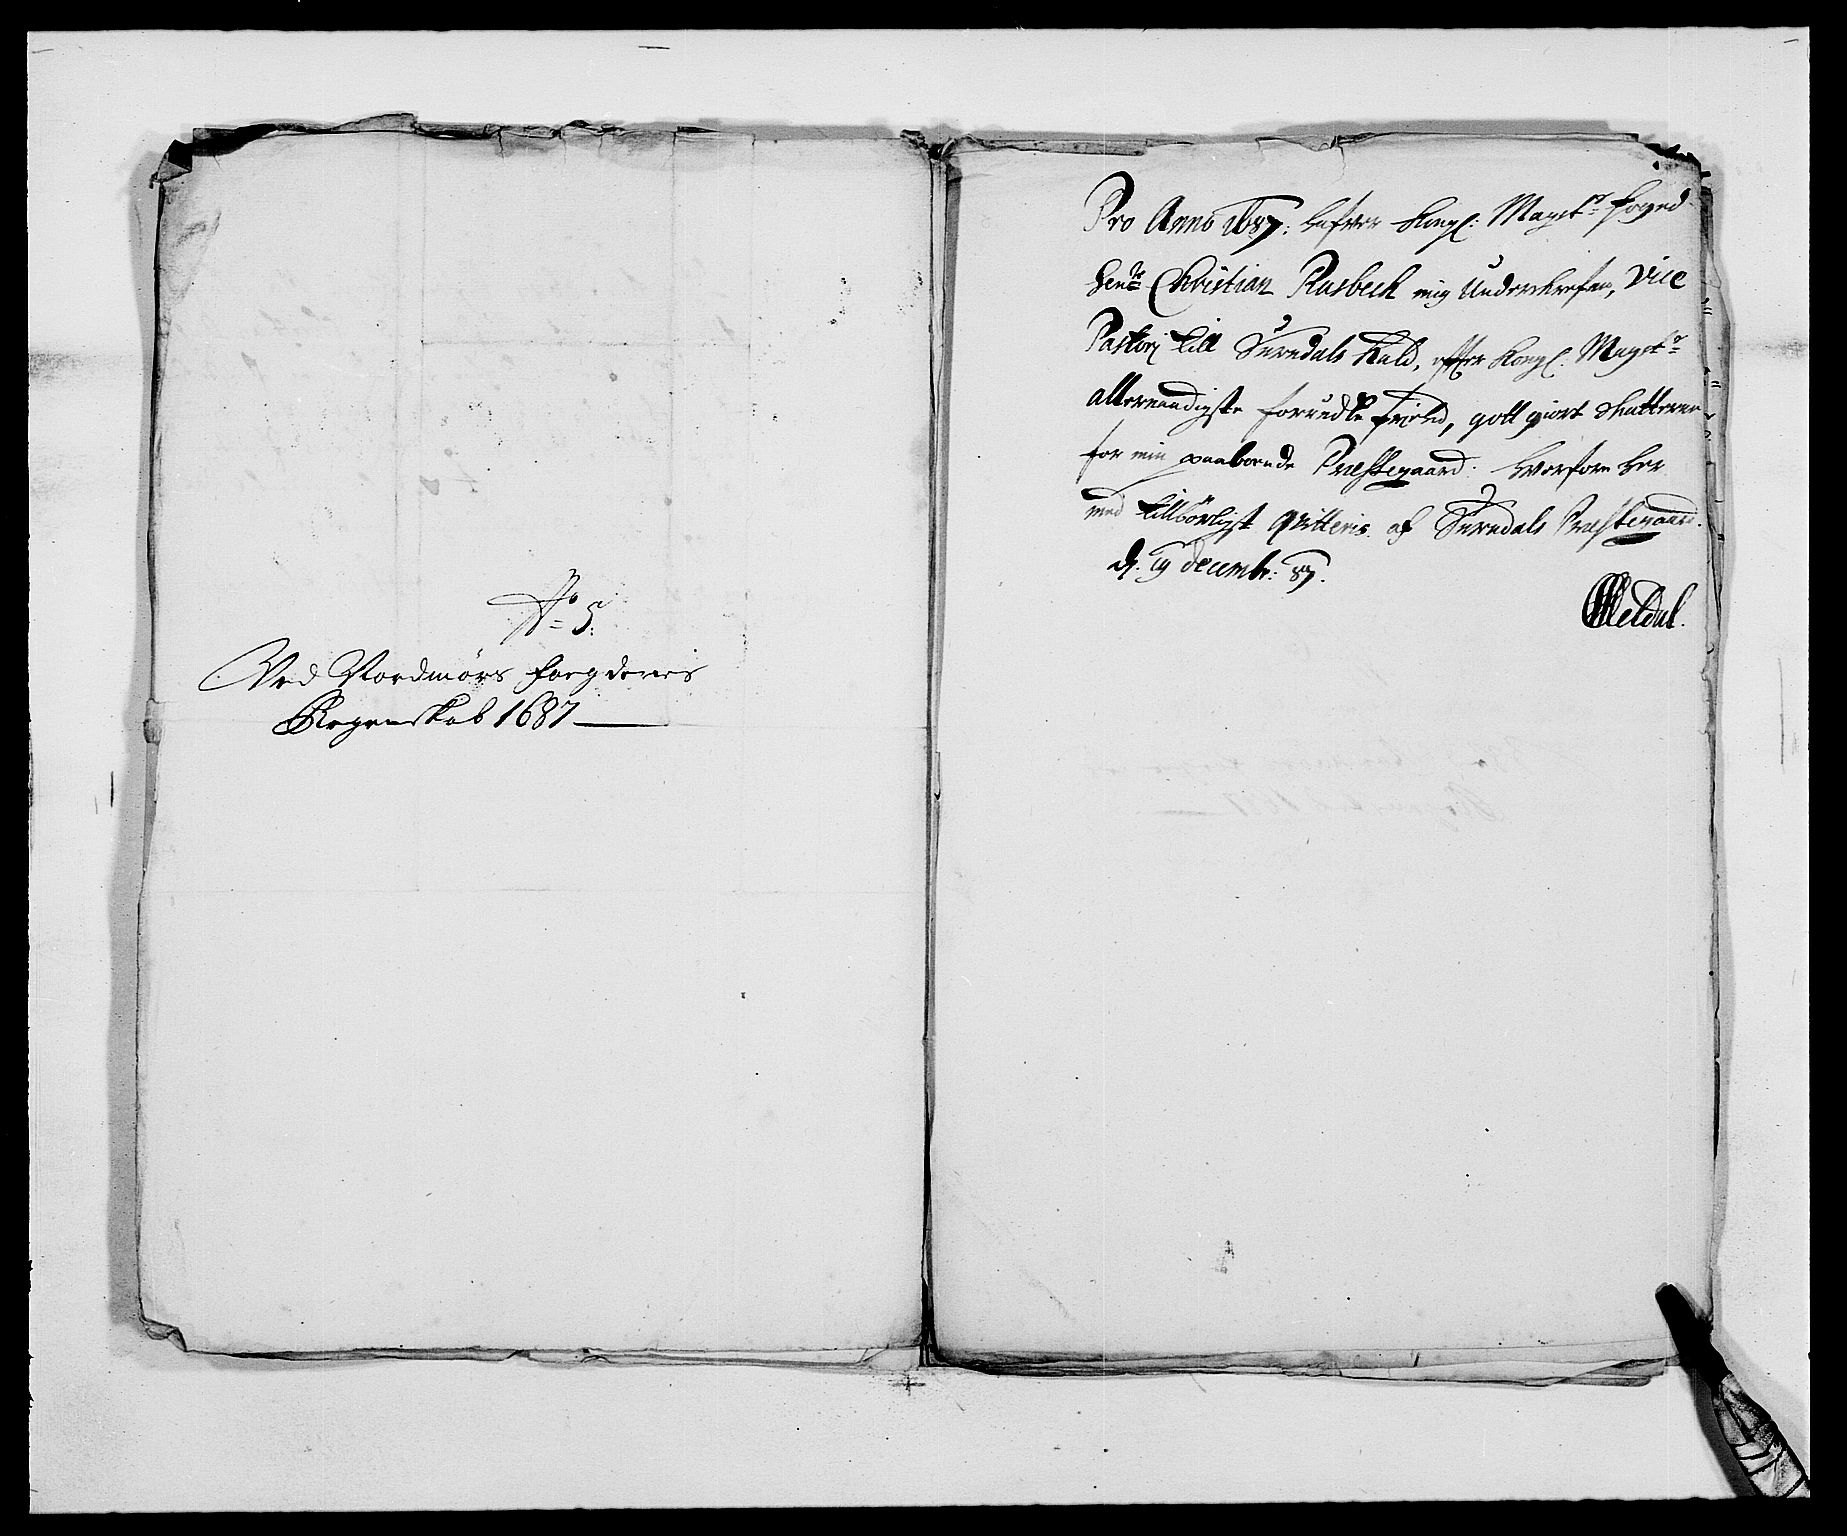 No 5.
Ved Nordmørs fogderies
Regenskab 1687
Pro Anno 1687: hafver Kongl: Mayst: foged
Christian Rasbech mig Underskrefen, Vice
Pastori till Surndals Kald, effter Kongl: Mayst:
allernaadigste forundte friehed, gott giort skatterne
for min paaboende Præstegaard: hvorfore her
med tillbörligst qvitteris. af Surndals Præstegaard.
d: 19 decemb: 87.
Meldal.